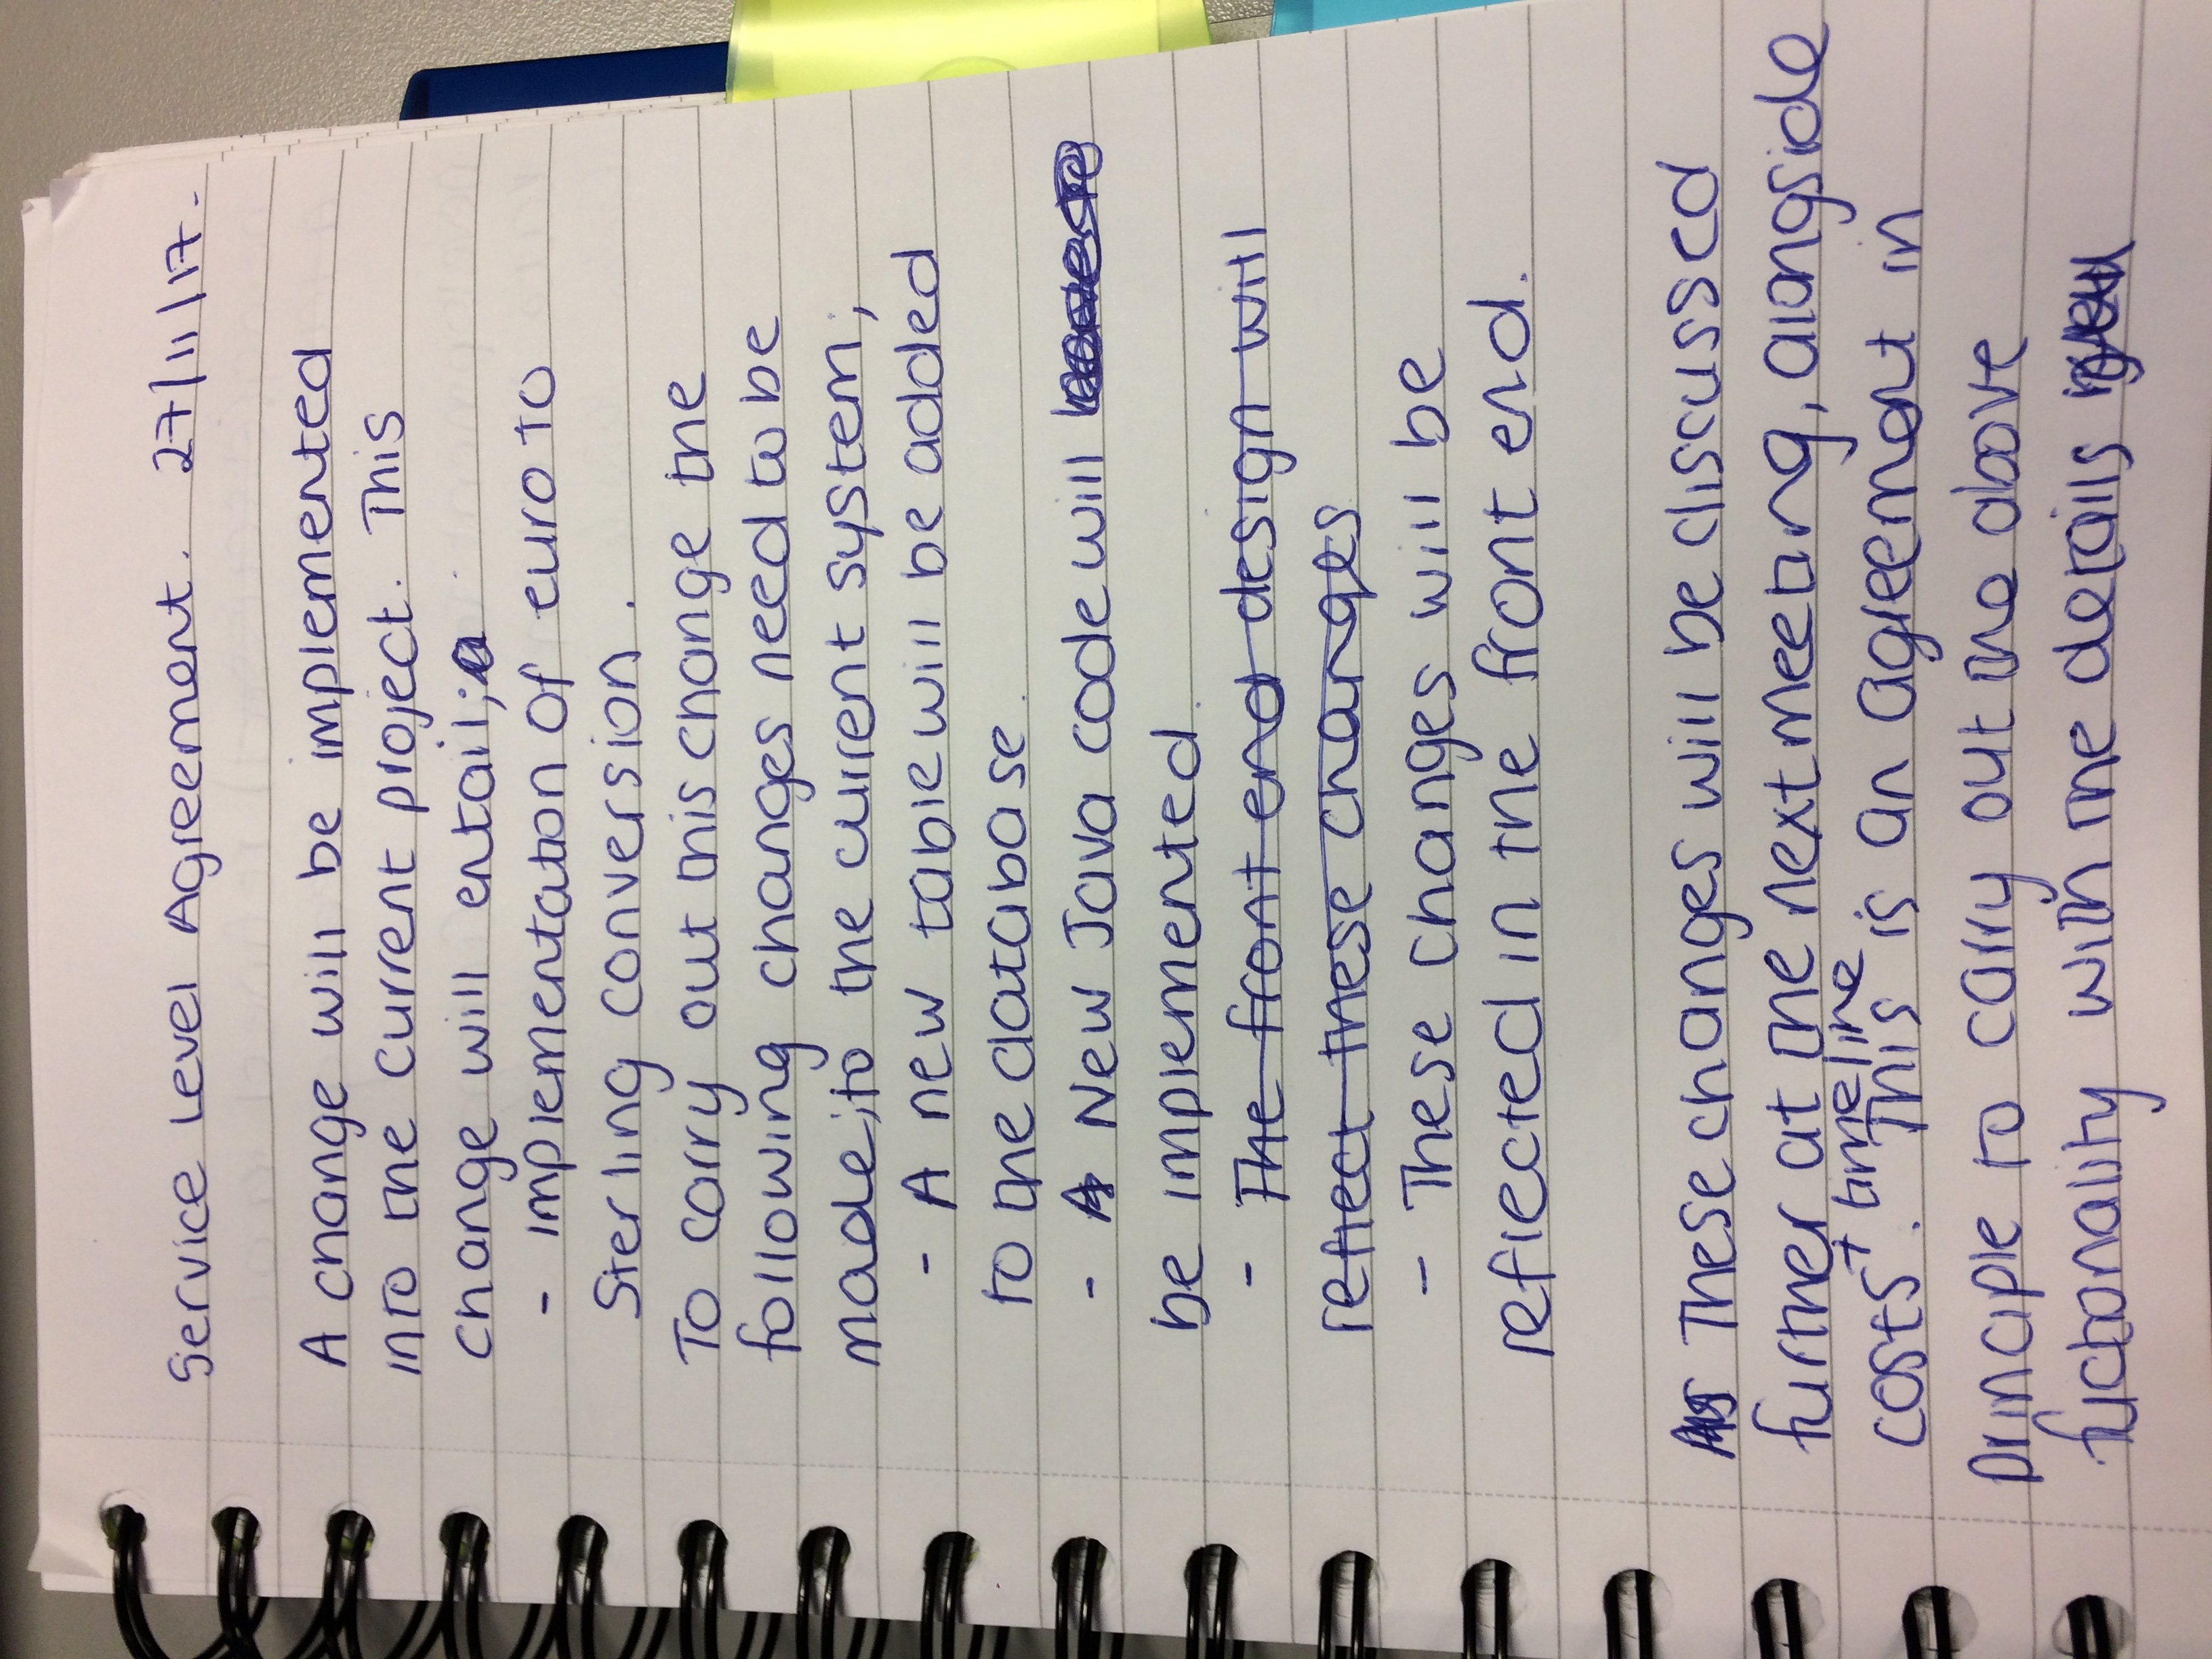 Service Level Agreement. 27/11/17.
A change will be implemented
into the current project. This
change will entail;
- implementation of euro to
Sterling conversion.
To carry out this change the
following changes need to be
made; to the current system;
- A new table will be added
to the database.
- New Java code will
be implemented.
- The front end design will
reflect these changes
- These changes will be
reflected in the front end.
These changes will be discussed
further at the next meeting, alongside
+ timeline
costs. This is an agreement in
principle to carry out the above
fuctionality with the details